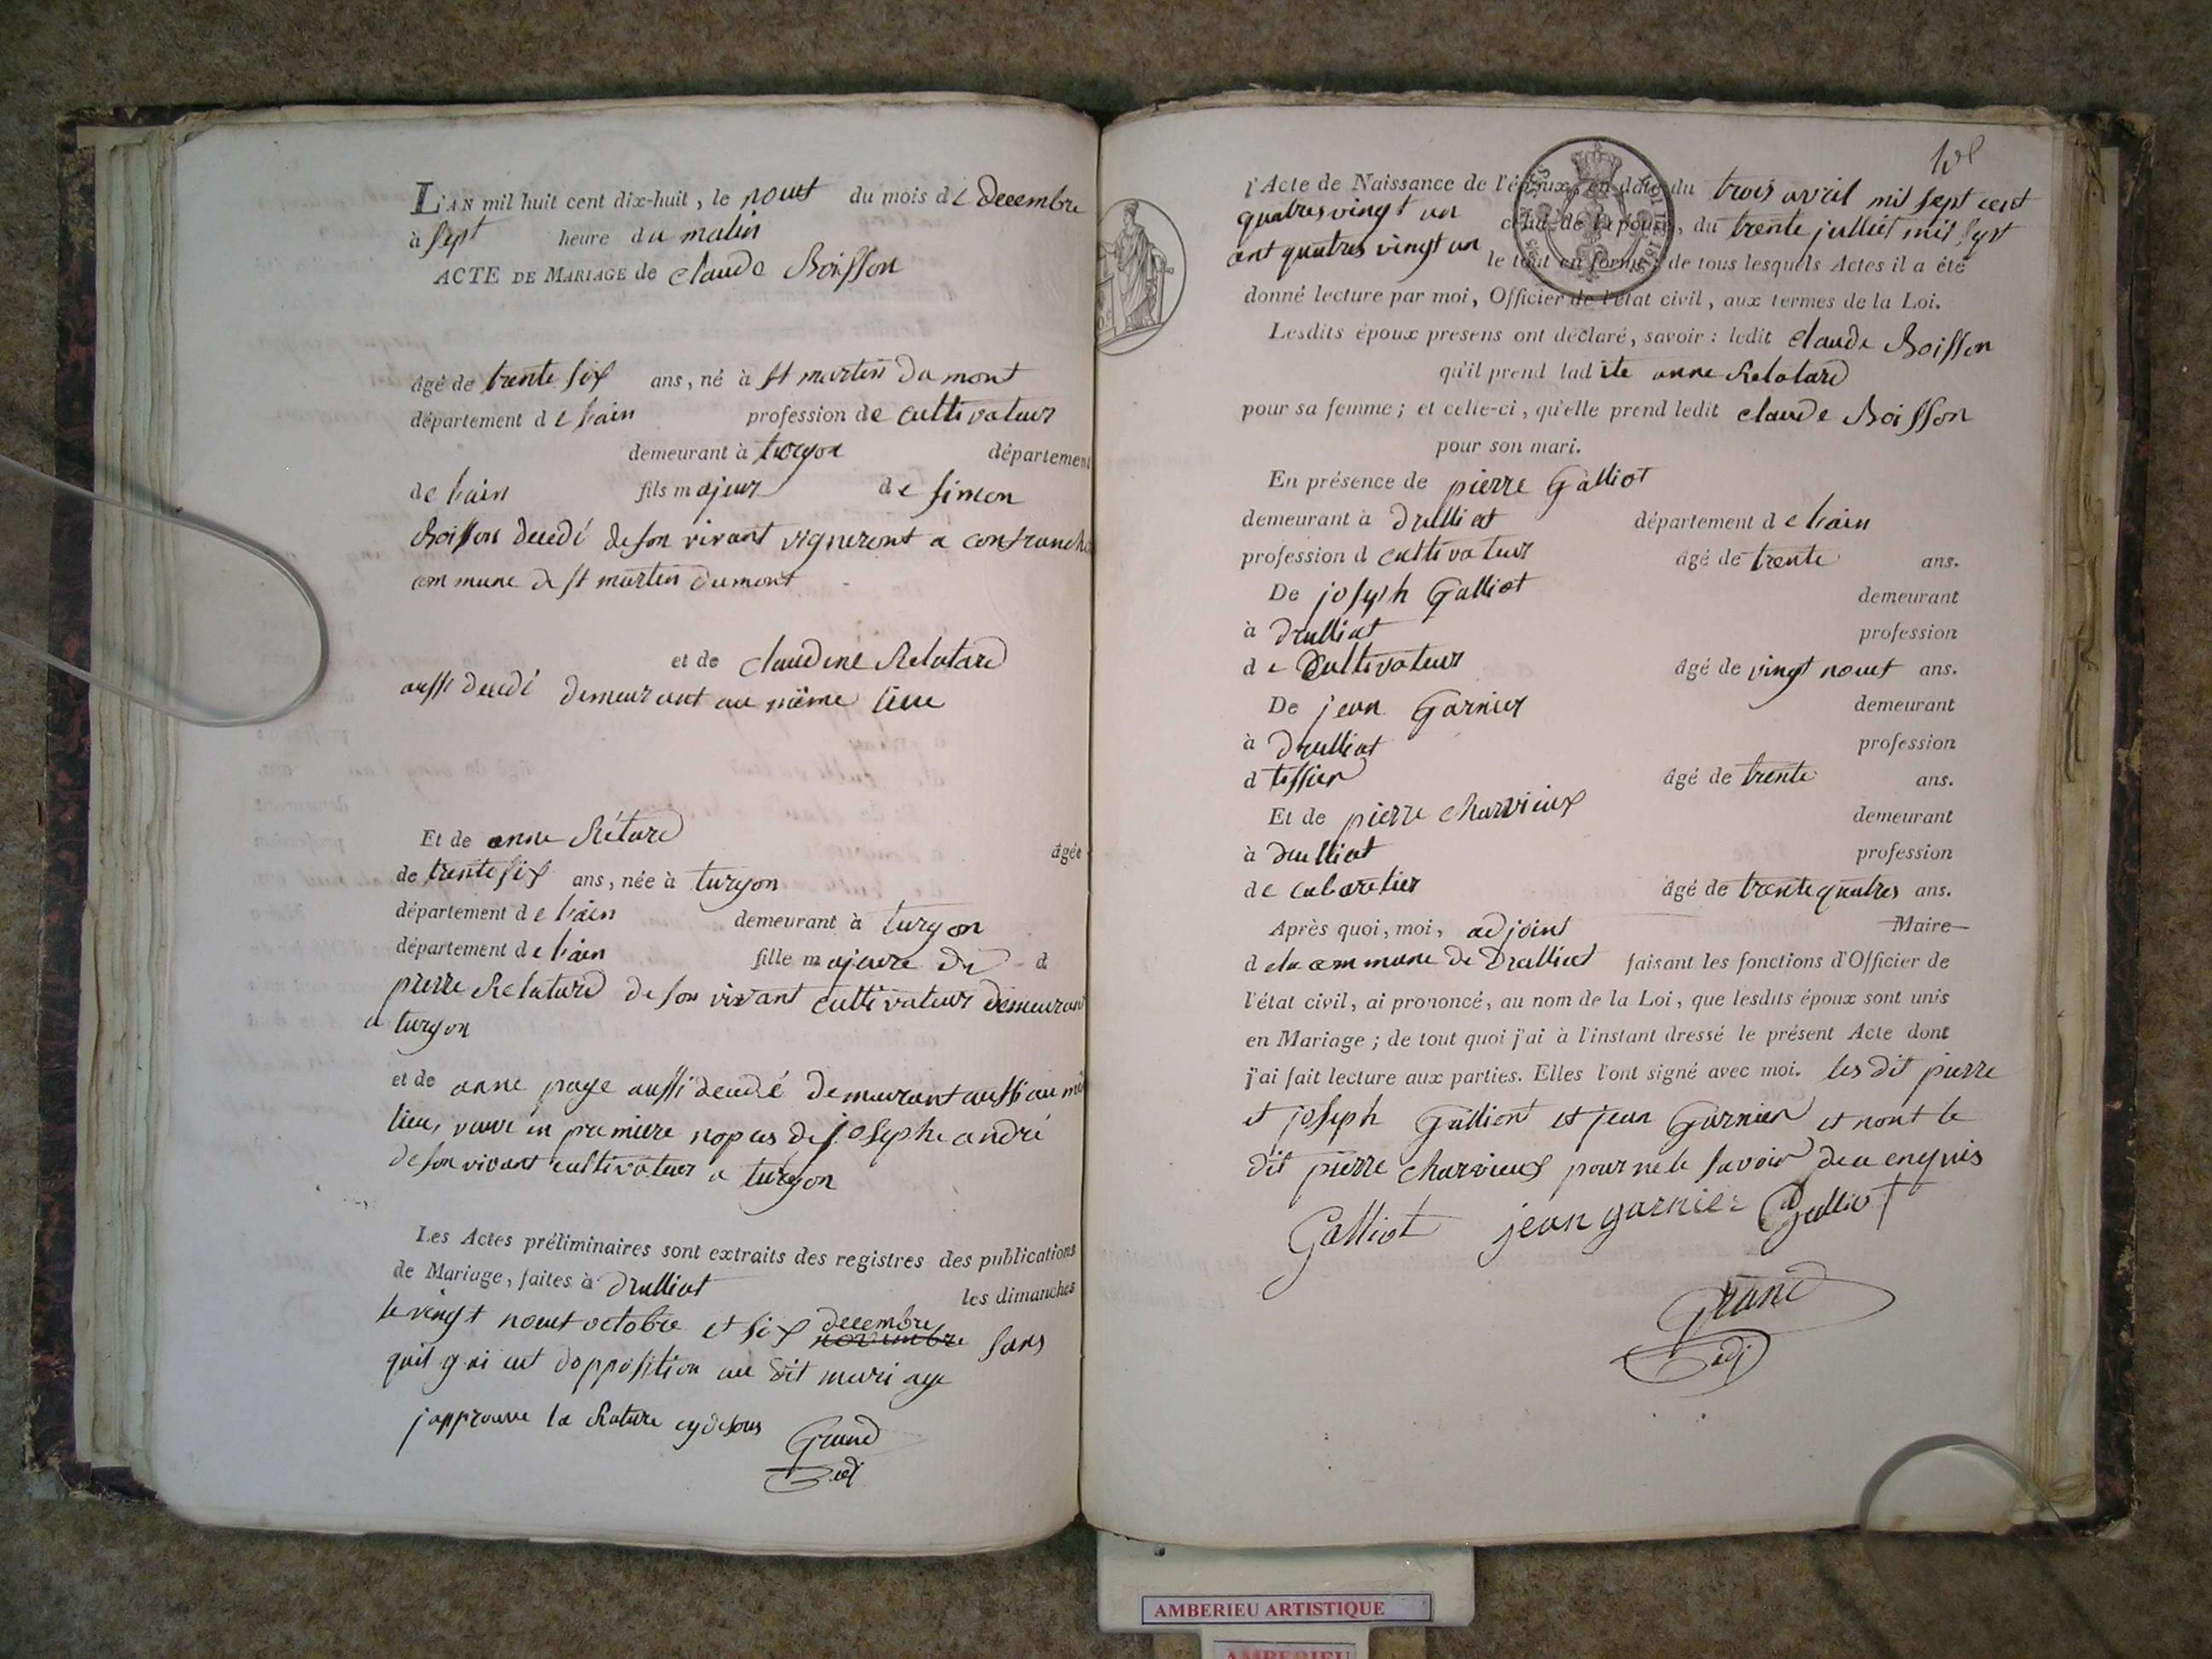 L'AN mil huit cent dix-huit, le nouf du mois de decembre
à sept heure du matin
ACTE DE MARIAGE de claude Boisson
âgé de trente six ans, né à st martin du mont
département de lain profession de cultivateur
demeurant à turgon département
de lain fils majeur de simon
Boisson decedé de son vivant vigneront a confranch
commune de st martin dumont
et de claudine Relatard
aussi decedé demeurant au même lieu
Et de anne Rétard âgée
de trente six ans, née à turgon
département de lain demeurant à turgon
département de lain fille majeure de d
pierre Relatard de son vivant cultivateur demeurant
a turgon
et de anne page aussi decedé demeurant aussi au mê
lieu, veuve en premiere nopces de josephe andré
de son vivant cultivateur a turgon
Les Actes préliminaires sont extraits des registres des publications
de Mariage, faites à Drulliat les dimanches
le vingt nouf octobre et six novembre decembre sans
quil y ai eut dopposition au dit mariage
japprouve la Rature cydesous Grand
adj
l'Acte de Naissance de l'époux, en date du trois avril mil sept cent
quatres vingt un celui de la épouse, du trente julliet mil sept
cent quatres vingt un le tout en forme; de tous lesquels Actes il a été
donné lecture par moi, Officier de l'état civil, aux termes de la Loi.
Lesdits époux presens ont déclaré, savoir: ledit claude Boisson
qu'il prend ladite anne Relatard
pour sa femme; et celle-ci, qu'elle prend ledit claude Boisson
pour son mari.
En présence de pierre Galliot
demeurant à drulliat département de lain
profession d cultivateur âgé de trente ans.
De joseph Galliot demeurant
à drulliat profession
de Cultivateur âgé de vingt nouf ans.
De jean Garnier demeurant
à drulliat profession
d tissier âgé de trente ans.
Et de pierre charvieux demeurant
à drulliat profession
de cabaretier âgé de trente quatres ans.
Après quoi, moi, adjoint Maire
de la commune de Drulliat faisant les fonctions d'Officier de
l'état civil, ai prononcé, au nom de la Loi, que lesdits époux sont unis
en Mariage; de tout quoi j'ai à l'instant dressé le présent Acte dont
j'ai fait lecture aux parties. Elles l'ont signé avec moi. les dit pierre
et joseph Galliont et jean Garnier et nont le
dit pierre charvieux pour ne le savoir de ce enquis
Galliot jean garnier Galliot
Grand
adj
AMBERIEU ARTISTIQUE
AMBERIEU